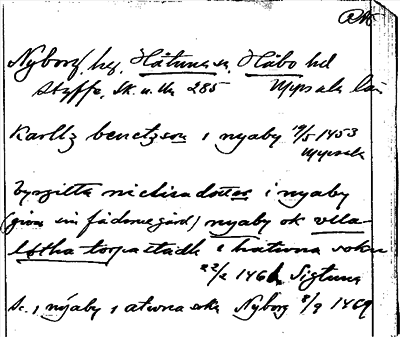 Nyborg, hg. Håtuna sn, Håbo hd
Styffe, Sk. u. Un 285 Uppsala län
Karllz benctzson i nyaby 19/5 1453
Uppsala
byrgitta niclisadotter i nyaby
(giva sin fäderne gård) nyaby ok
torpastadh i hatwna sokn
22/2 146 Sigtuna
i nyaby i atwna Nyborg 8/9 1469